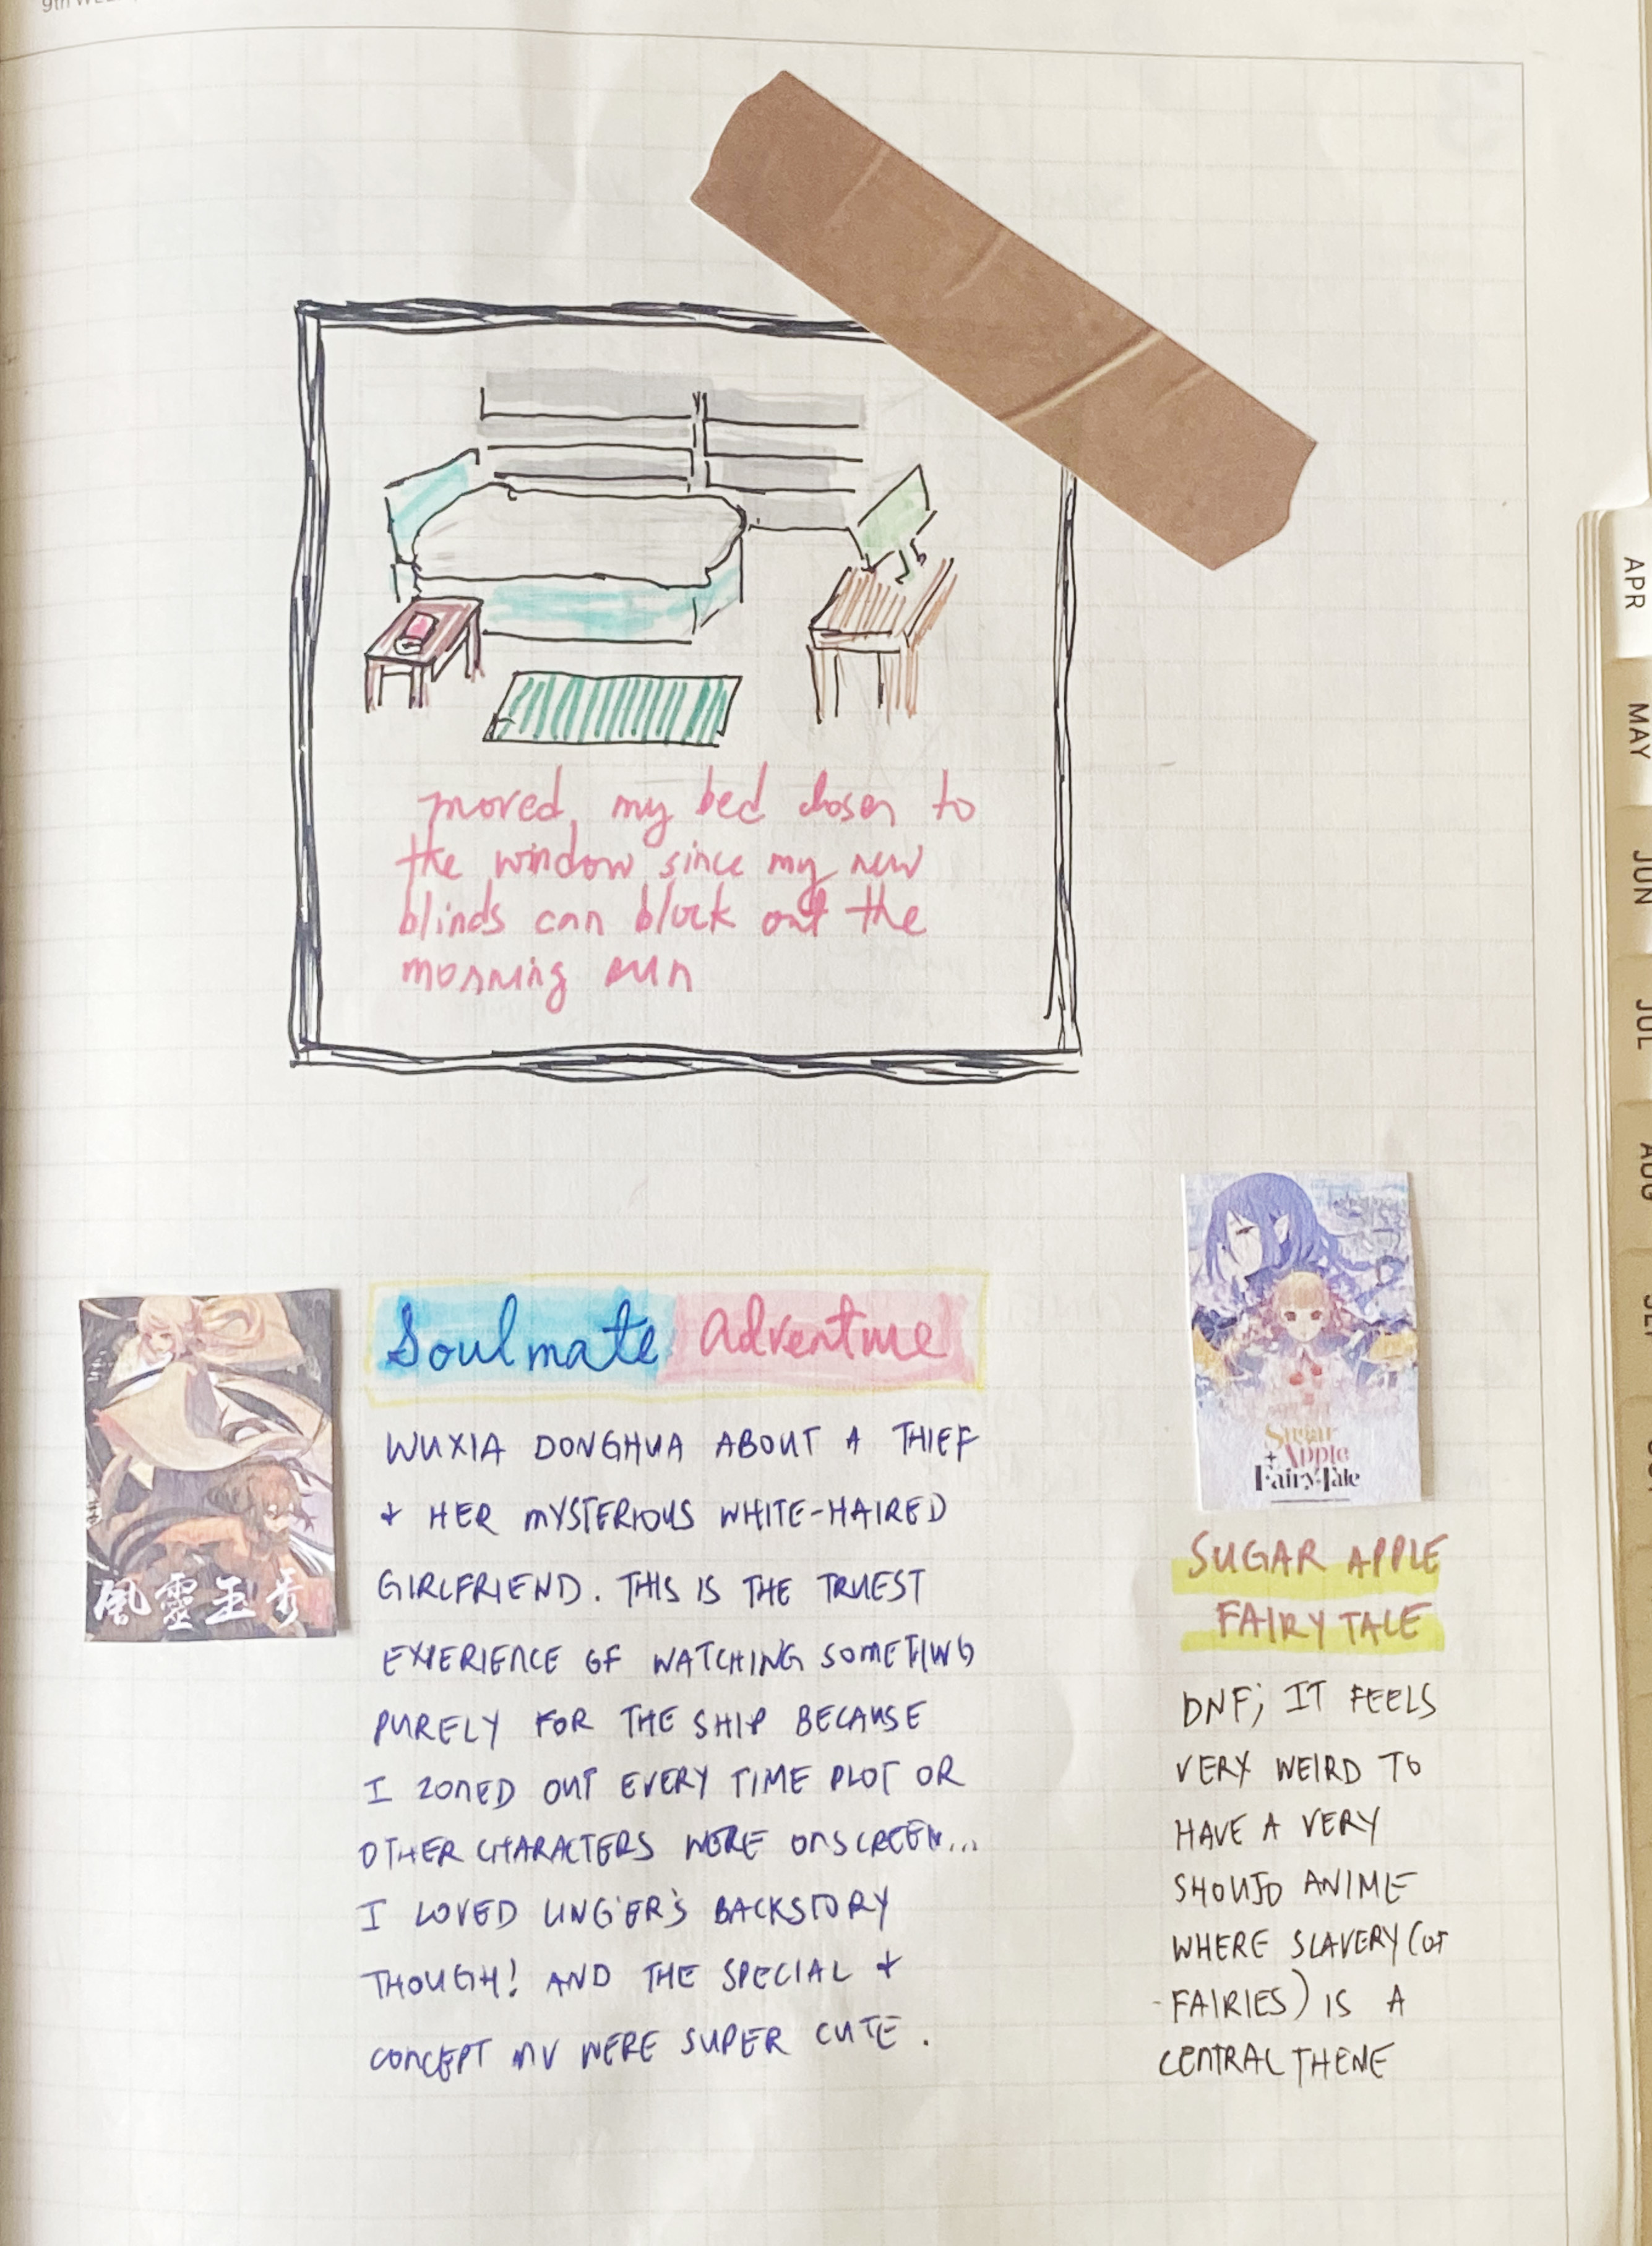 9th WEE
moved my bed closer to
the window since my new
blinds can block out the
morning sun
風靈玉秀
Soulmate Adventure
WUXIA DONGHUA ABOUT A THIEF
+ HER MYSTERIOUS WHITE-HAIRED
GIRLFRIEND. THIS IS THE TRUEST
EXPERIENCE OF WATCHING SOMETHING
PURELY FOR THE SHIP BECAUSE
I ZONED OUT EVERY TIME PLOT OR
OTHER CHARACTERS WERE ONSCREEN...
I LOVED LING'ER'S BACKSTORY
THOUGH! AND THE SPECIAL +
CONCEPT MV WERE SUPER CUTE.
Sugar
Apple
Fairy Tale
SUGAR APPLE
FAIRY TALE
DNF; IT FEELS
VERY WEIRD TO
HAVE A VERY
SHOUJO ANIME
WHERE SLAVERY (OF
FAIRIES) IS A
CENTRAL THEME
APR
MAY
JUN
JUL
AUG
SEP